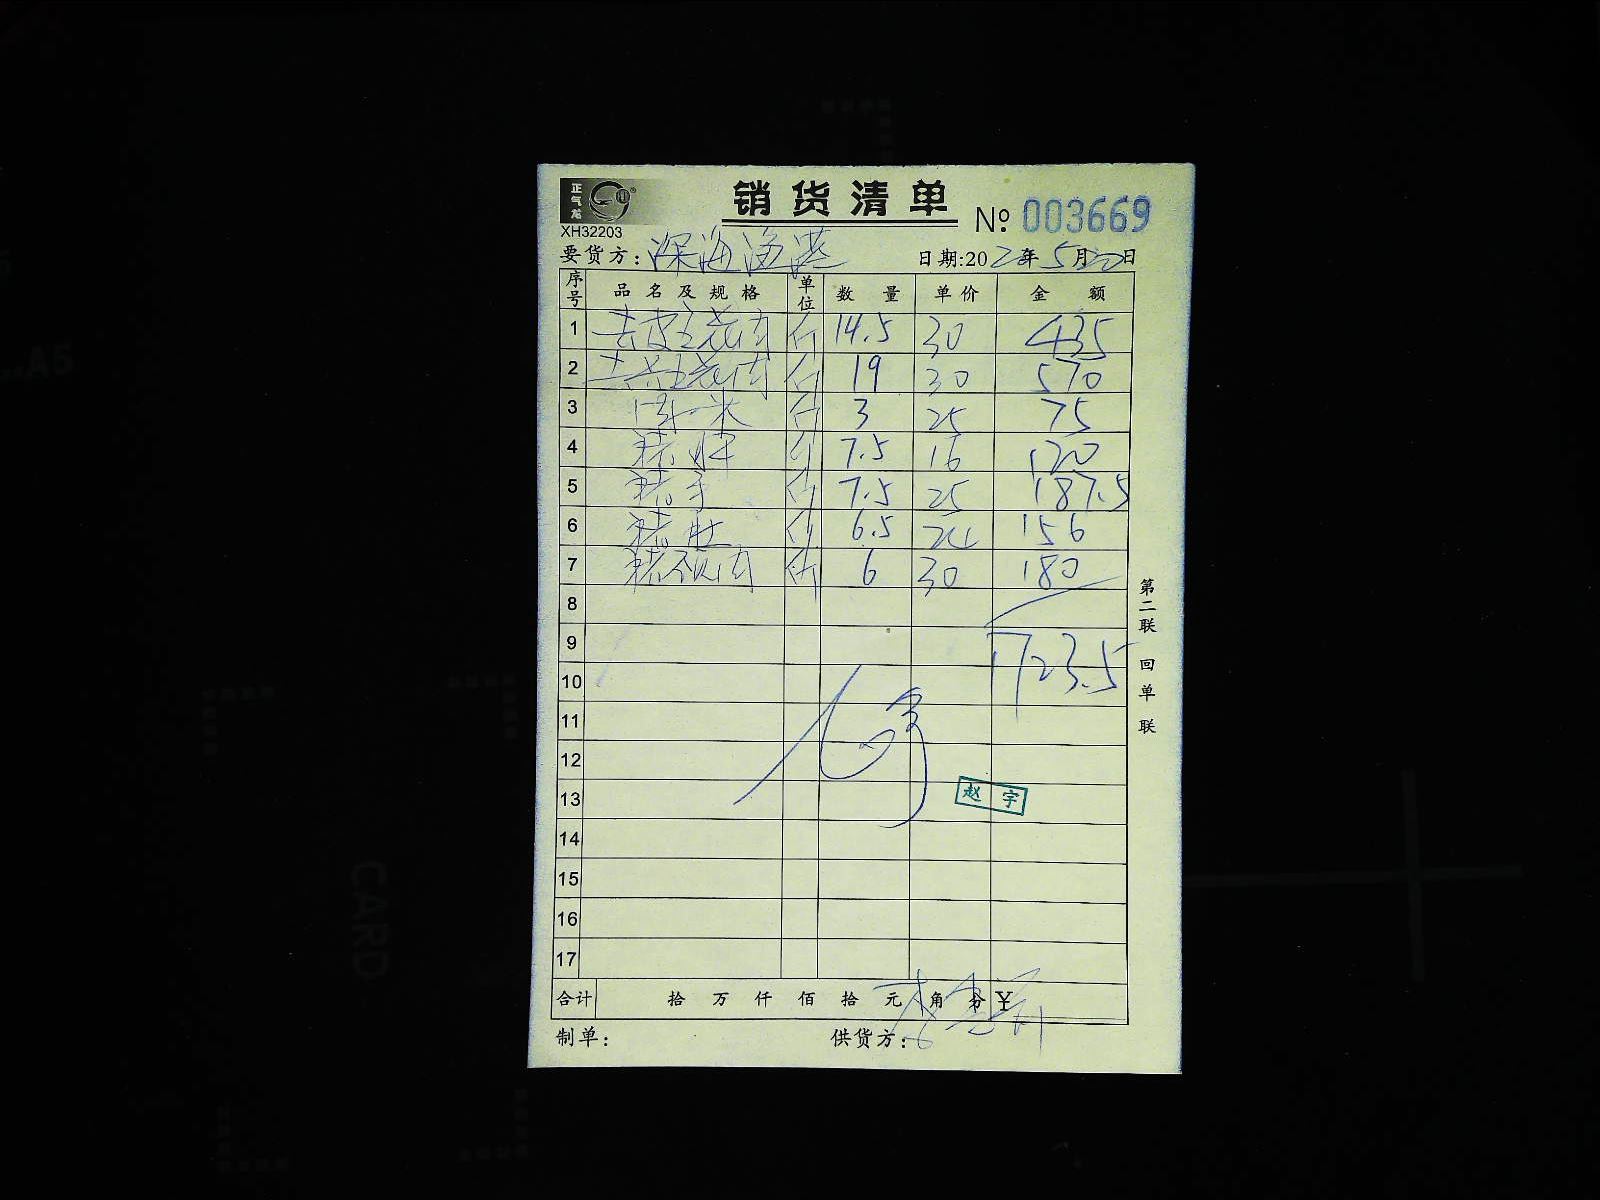 正气龙
XH32203
销货清单
№ 003669
要货方: 深海渔港 日期:2022年5月20日
序号 品名及规格 单位 数量 单价 金额
1 去皮五花肉 斤 14.5 30 435
2 五花肉 斤 19 30 570
3 肉 斤 3 25 75
4 猪肝 斤 7.5 16 120
5 猪手 斤 7.5 25 187.5
6 猪肚 斤 6.5 24 156
7 猪颈肉 斤 6 30 180
8
9 1723.5
10
11
12
13 赵宇
14
15
16
17
合计 拾 万 仟 佰 拾 元 角 分 ¥
制单: 供货方:
第二联 回单联